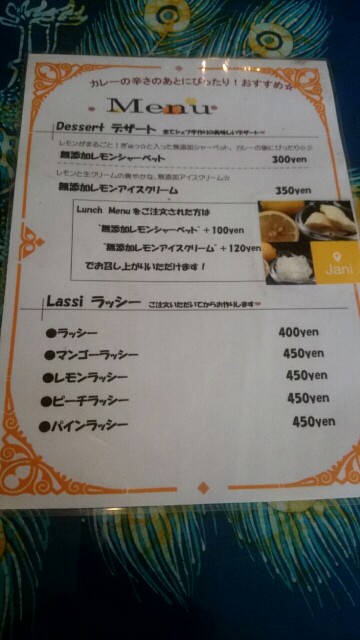 カレーの辛さのあとにぴったり！おすすめ☆
Menu
Dessert デザート 全てシェフ手作りの美味しいデザート♡
レモンがまるごと！ぎゅっ☆と入った無添加シャーベット、カレーの後にぴったり☆彡
無添加レモンシャーベット 300yen
レモンと生クリームの爽やかな、無添加アイスクリーム☆
無添加レモンアイスクリーム 350yen
Lunch Menu をご注文された方は
"無添加レモンシャーベット" +100yen
"無添加レモンアイスクリーム" +120yen
でお召し上がりいただけます！
Jani
Lassi ラッシー ご注文いただいてからお作りします♡
●ラッシー 400yen
●マンゴーラッシー 450yen
●レモンラッシー 450yen
●ピーチラッシー 450yen
●パインラッシー 450yen